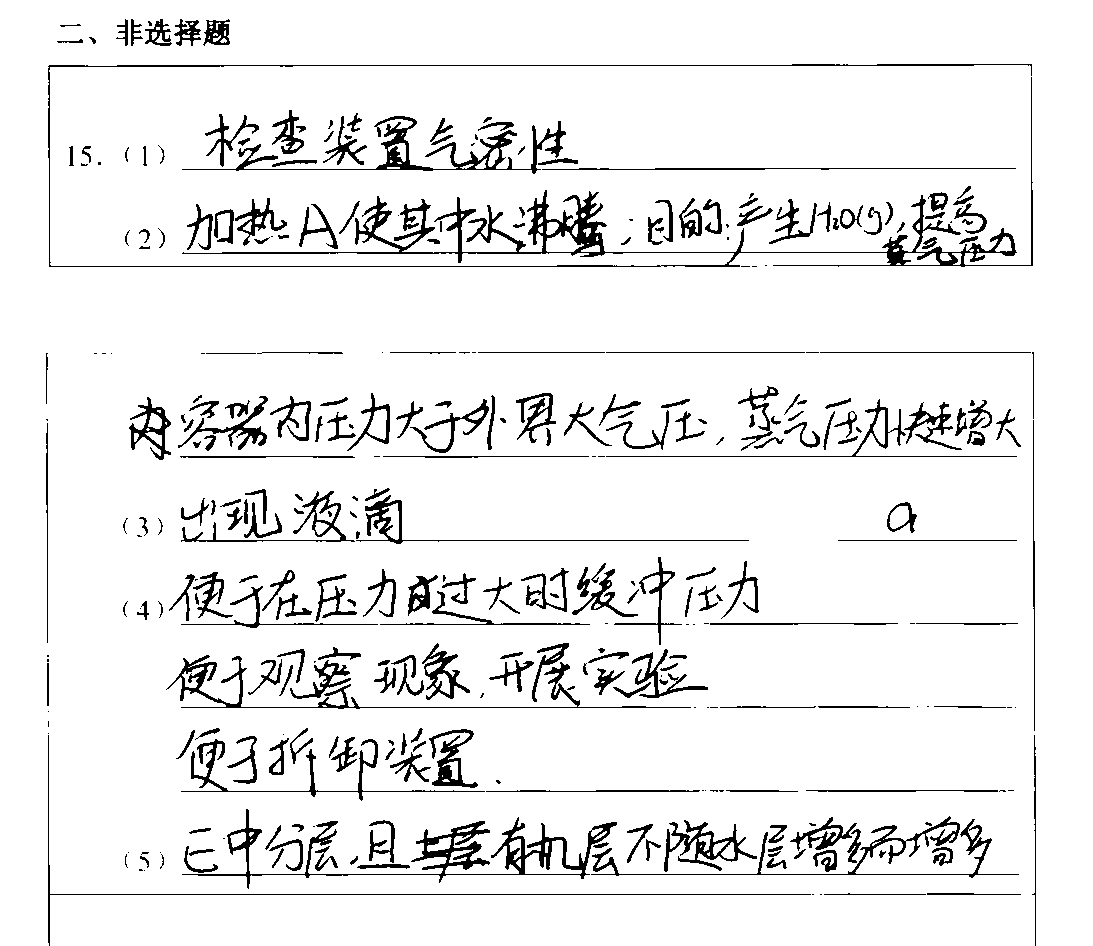 二、非选择题
15.（1）检查装置气密性
（2）加热A使其中水沸腾；目的：产生H2O(g)，提高
蒸气压力
容器内压力大于外界大气压，蒸气压力快速增大
（3）出现液滴 a
（4）便于在压力过大时缓冲压力
便于观察现象，开展实验
便于拆卸装置．
（5）E中分层，且有机层不随水层增多而增多